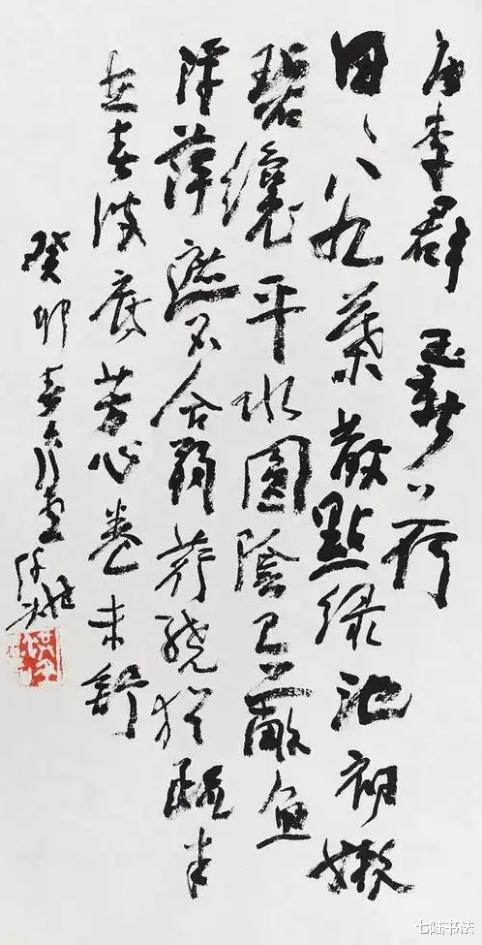 唐李群玉新荷
田々八九葉散點緑池初嫩
碧纔平水圓陰已蔽魚
浮萍遮不合弱荇繞猶疏半
在春波底芳心卷未舒
癸卯春
七陆书法